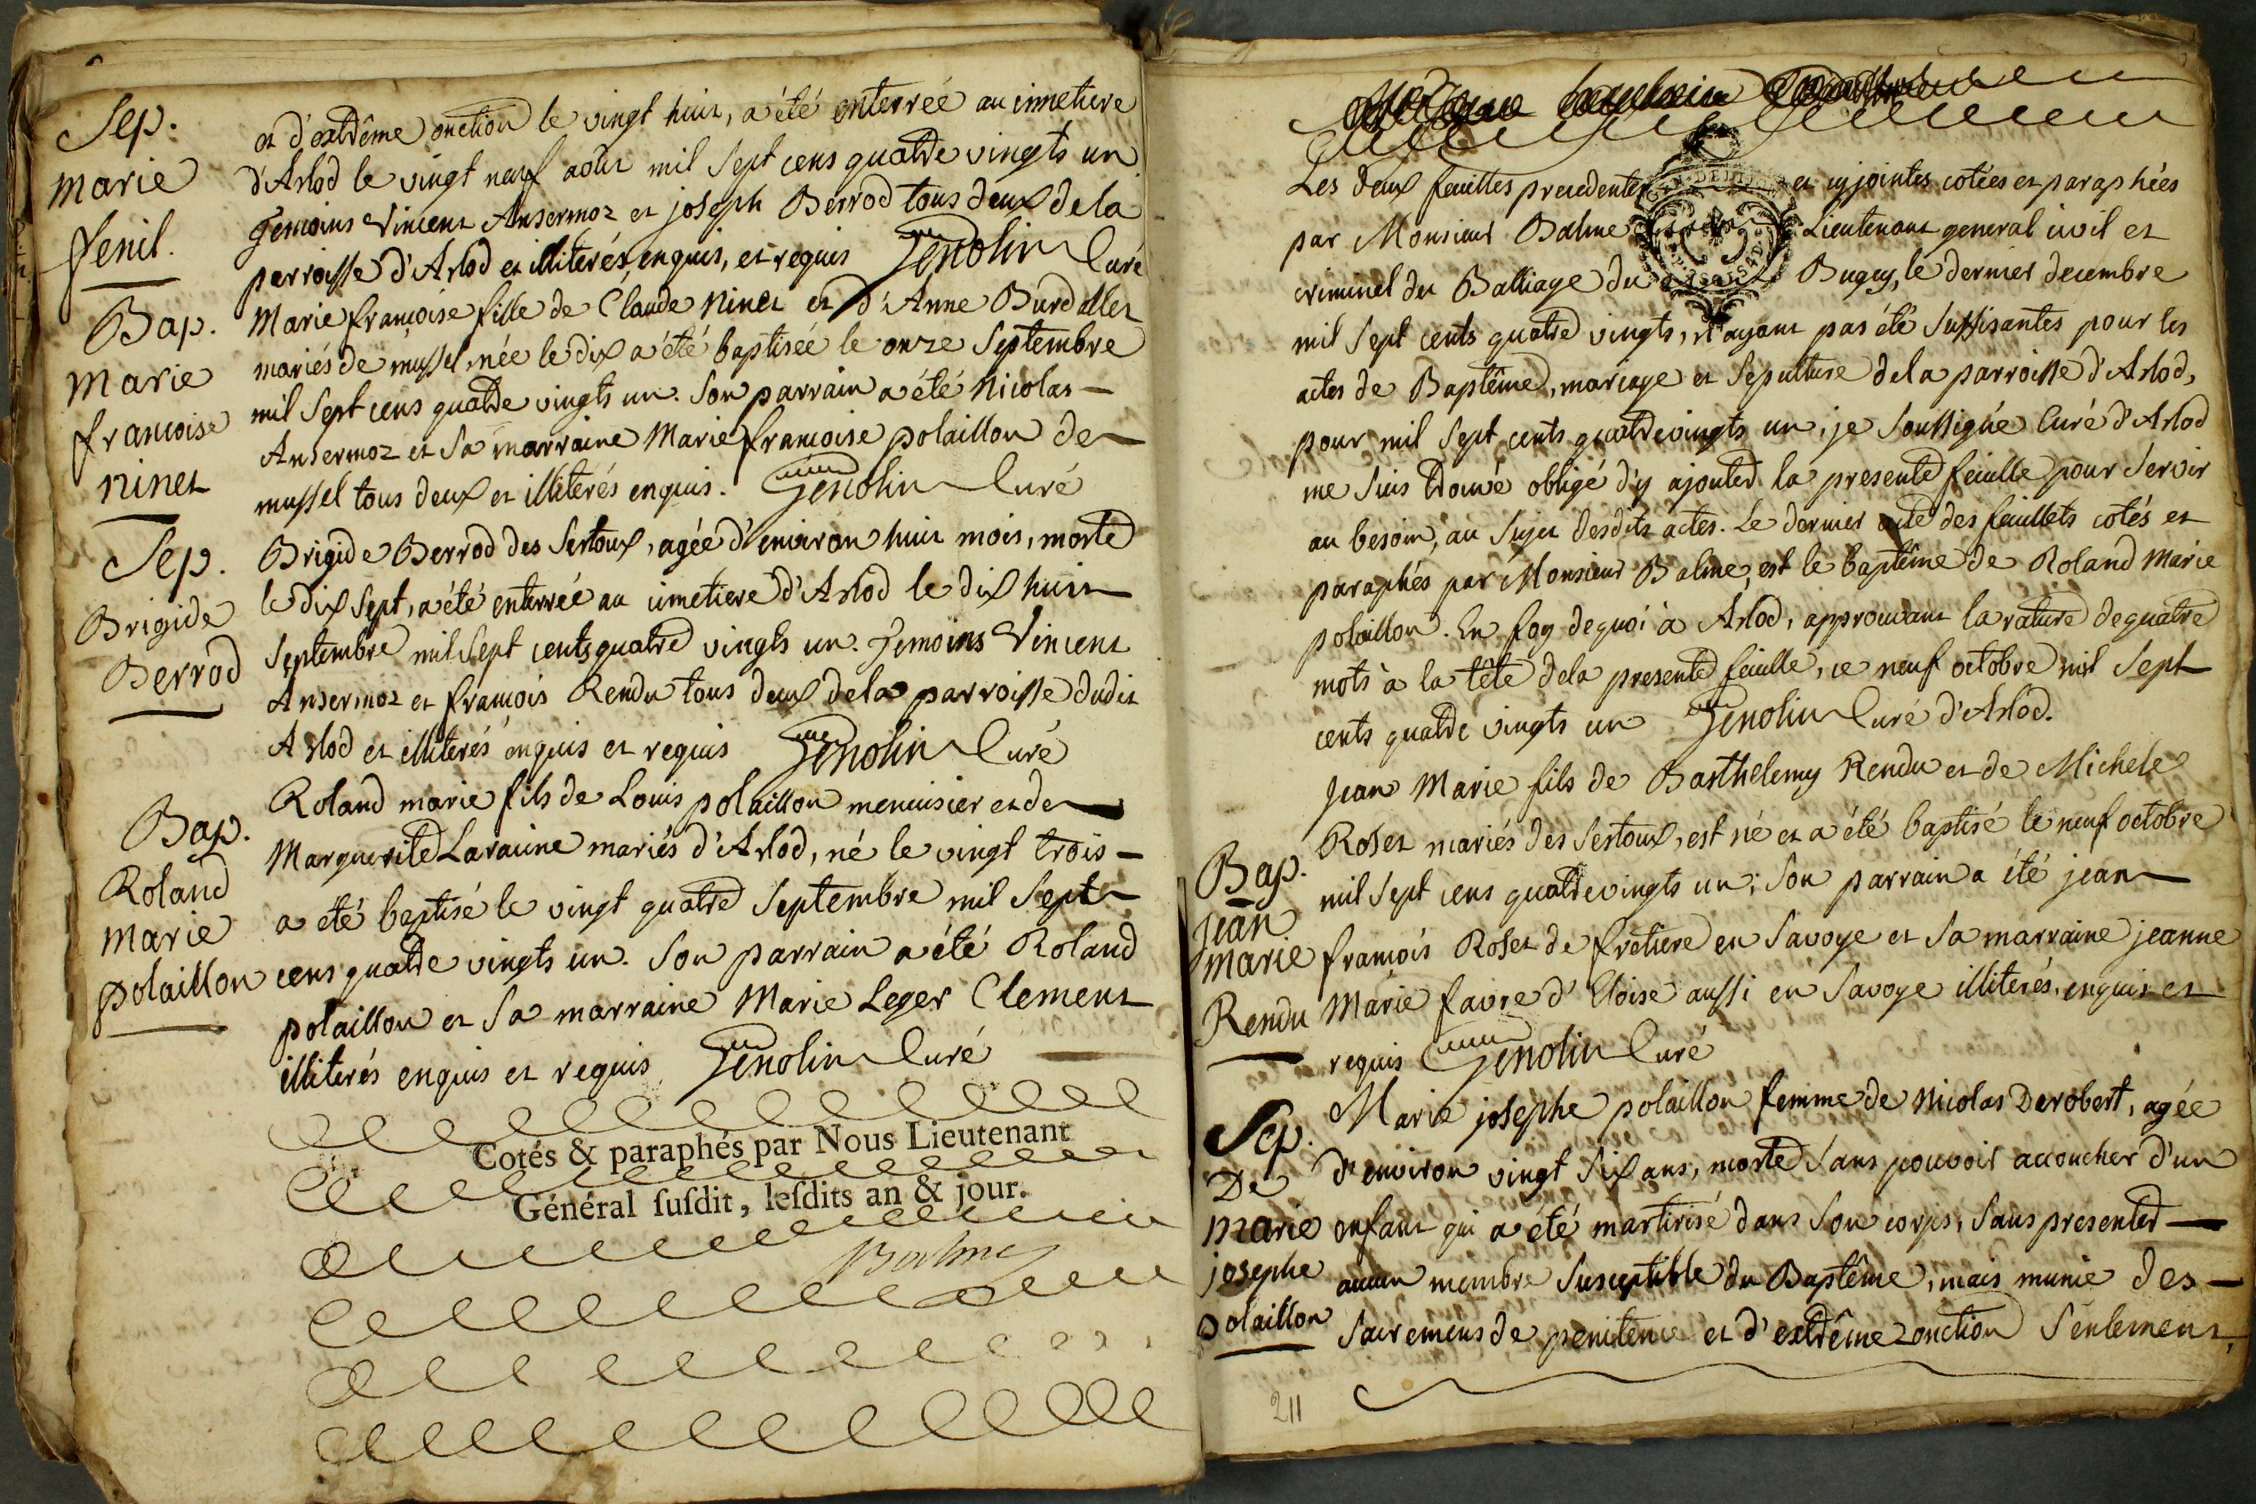 Sep.
marie
fenil.
et d'extrême onction le vingt huit, a été enterrée au cimetiere
d'Arlod le vingt neuf aout mil sept cens quatre vingts un
Temoins Vincent Ansermoz et joseph Berrod tous deux de la
parroisse d'Arlod et illiterés, enquis, et requis Genolin Curé
Bap.
marie
francoise
ninet
Marie francoise fille de Claude Ninet et d'Anne Burdallet
mariés de mussel, née le dix a été baptisée le onze Septembre
mil Sept cens quatre vingts un. Son parrain a été Nicolas
Ansermoz et Sa marraine Marie francoise polaillon de
mussel tous deux et illiterés enquis. Genolin Curé
Sep.
Brigide
Berrod
Brigide Berrod des Sertoux, agée d'environ huit mois, morte
le dix Sept, a été enterrée au cimetiere d'Arlod le dix huit
Septembre mil Sept cents quatre vingts un. Temoins Vincent
Ansermoz et francois Rendu tous deux de la parroisse dudit
Arlod et illiterés enquis et requis Genolin Curé
Bap.
Roland
marie
polaillon
Roland marie fils de Louis polaillon menuisier et de
Marguerite Laracine mariés d'Arlod, né le vingt trois
a été baptisé le vingt quatre Septembre mil Sept
cens quatre vingts un. Son parrain a été Roland
polaillon et Sa marraine Marie Leger Clement
illiterés enquis et requis Genolin Curé
Cotés & paraphés par Nous Lieutenant
Général susdit, lesdits an & jour.
Balme
Les deux feuilles precedentes et cyjointes cotées et paraphées
par Monsieur Balme Lieutenant general civil et
criminel du Balliage du Bugey, le dernier decembre
mil Sept cents quatre vingts, n'ayant pas été Suffisantes pour les
actes de Baptême, mariage et Sepulture de la parroisse d'Arlod,
pour mil Sept cents quatrevingts un, je Soussigné Curé d'Arlod
me Suis trouvé obligé d'y ajouter la presente feuille pour Servir
au besoin, au Sujet desdits actes. Le dernier acte des feuillets cotés et
paraphés par Monsieur Balme, est le baptême de Roland Marie
polaillon. En foy dequoi à Arlod, approuvant la rature de quatre
mots à la tête de la presente feuille, ce neuf octobre mil Sept
cents quatre vingts un Genolin Curé d'Arlod.
Bap.
jean
marie
Rendu
Jean Marie fils de Barthelemy Rendu et de Michele
Roset mariés des Sertoux, est né et a été baptisé le neuf octobre
mil Sept cens quatrevingts un; Son parrain a été jean
francois Roset de fretiere en Savoye et Sa marraine jeanne
Marie favre d'Eloise aussi en Savoye illiterés, enquis et
requis Genolin Curé
Sep.
De
marie
josephe
polaillon
Marie josephe polaillon femme de Nicolas Derobert, agée
d'environ vingt Six ans, morte Sans pouvoir accoucher d'un
enfant qui a été martirisé dans Son corps, Sans presenter
aucun membre Susceptible du Baptême, mais munie des
Sacremens de penitence et d'extrême onction Seulement,
211